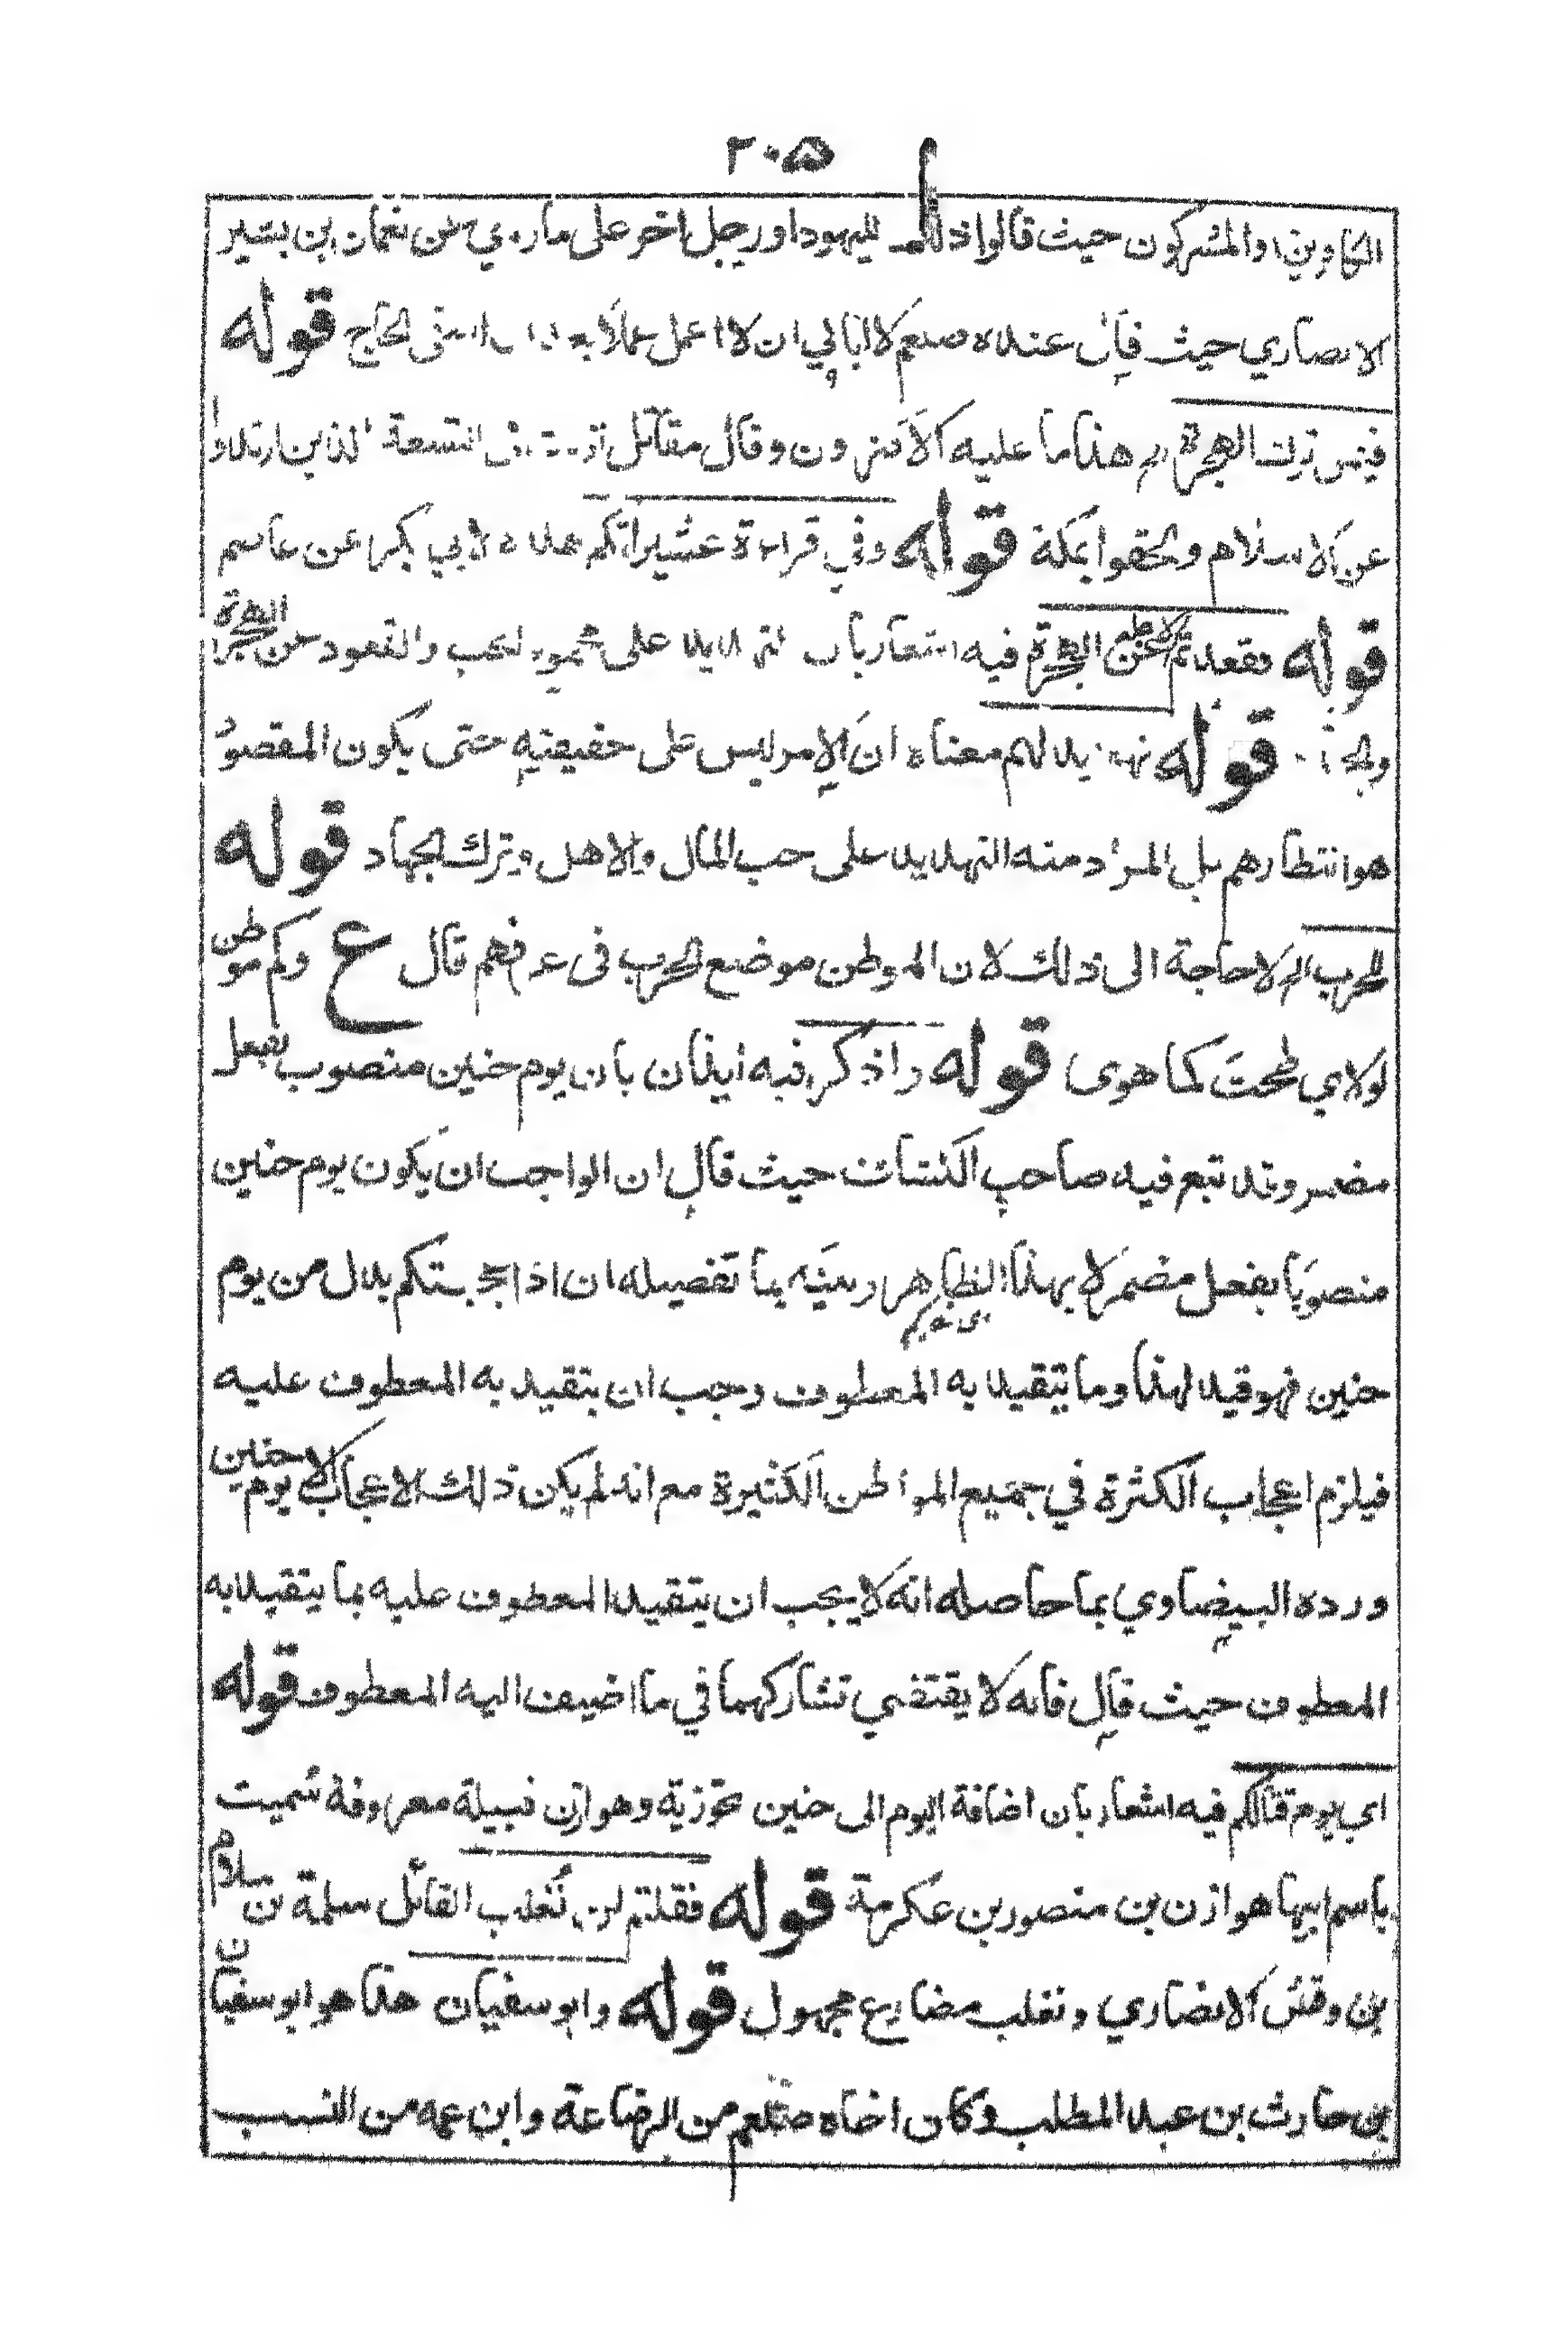 ٢٠٥
والمشركون حيث قالوا ذلك لليهود او رجل اخر على ما روي عن نعمان بن بشير
الانصاري حيث قال عنده صلعم لا ابالي ان لا اعمل عملا بعد ان اسقى الحاج قوله
فيمن ترك الهجرة هذا ما عليه الاكثرون وقال مقاتل نزلت في التسعة الذين ارتدوا
عن الاسلام ولحقوا بمكة قوله وفي قراءة عشيراتكم هذه لابي بكر عن عاصم
قوله فقعدتم لاجله عن الهجرة فيه اشعار بان التهديد على مجموع الحب والقعود عن الهجرة
قوله تهديد لهم معناه ان الامر ليس على حقيقته حتى يكون المقصود
هو انتظارهم بل المراد منه التهديد على حب المال والاهل وترك الجهاد قوله
للحرب لا حاجة الى ذلك لان الموطن موضع الحرب في عرفهم قال ع وكم موطن
لولاي طحت كما هوى قوله واذكر فيه ايذان بان يوم حنين منصوب بفعل
مضمر وقد تبع فيه صاحب الكشاف حيث قال ان الواجب ان يكون يوم حنين
منصوبا بفعل مضمر لا بهذا الظاهر وبينه بما تفصيله ان اذ اعجبتكم بدل من يوم
حنين فهو قيد لهذا وما يتقيد به المعطوف وجب ان يتقيد به المعطوف عليه
فيلزم اعجاب الكثرة في جميع المواطن الكثيرة مع انه لم يكن ذلك الاعجاب الا يوم حنين
ورده البيضاوي بما حاصله انه لا يجب ان يتقيد المعطوف عليه بما يتقيد به
المعطوف حيث قال فانه لا يقتضي تشاركهما في ما اضيف اليه المعطوف قوله
اي يوم قتالكم فيه اشعار بان اضافة اليوم الى حنين تجوزية وهوازن قبيلة معروفة سميت
باسم ابيها هوازن بن منصور بن عكرمة قوله فقلتم لن نغلب القائل سلمة بن سلام
بن وقش الانصاري ونغلب مضارع مجهول قوله وابو سفيان هذا هو ابو سفيان
بن حارث بن عبد المطلب وكان اخاه صلعم من الرضاعة وابن عمه من النسب